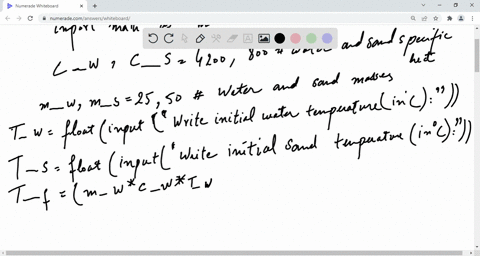 Numerade Whiteboard
numerade.com/answers/whiteboard/
import math
C_W, C_S = 4200, 800 # Water and sand specific
heat
m_w, m_s = 25, 50 # Water and sand masses
T_w = float(input("Write initial water temperature (in °C):"))
T_s = float(input("Write initial sand temperature (in °C):"))
T_f = (m_w*c_w*T_w